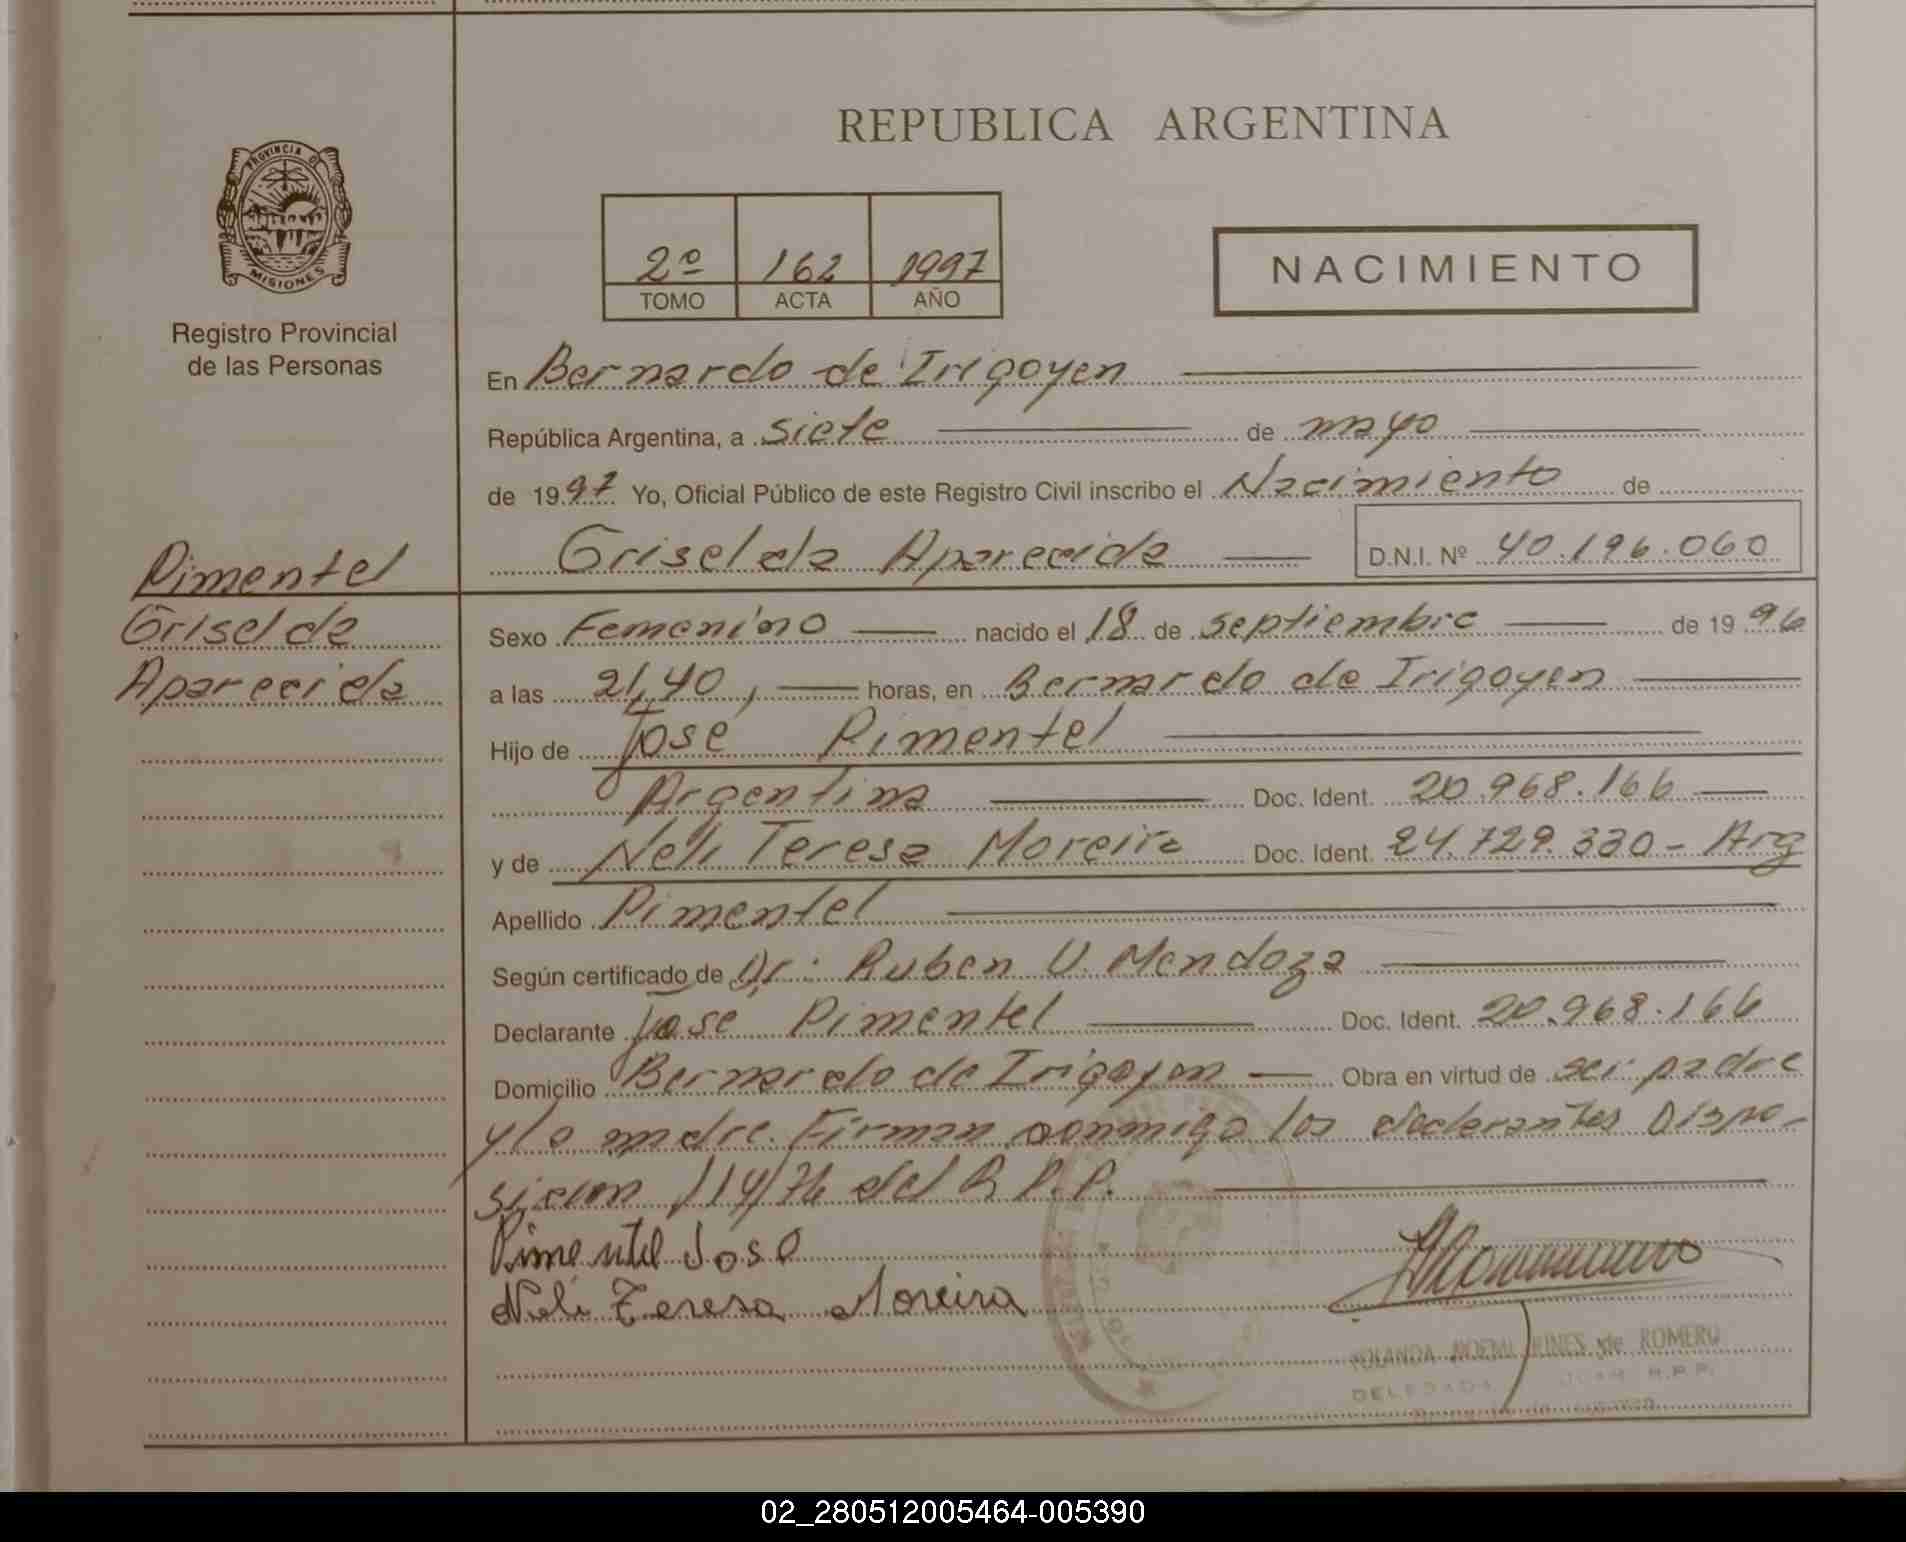 REPUBLICA ARGENTINA
PROVINCIA DE
MISIONES
Registro Provincial
de las Personas
2º 162 1997
TOMO ACTA AÑO
NACIMIENTO
En Bernardo de Irigoyen
República Argentina, a siete de mayo
de 1997 Yo, Oficial Público de este Registro Civil inscribo el Nacimiento de
Griselda Aparecida D.N.I. Nº 40.196.060
Pimentel
Griselda
Aparecida
Sexo Femenino nacido el 18 de septiembre de 1996
a las 21,40, horas, en Bernardo de Irigoyen
Hijo de José Pimentel
Argentina Doc. Ident. 20.968.166
y de Neli Teresa Moreira Doc. Ident. 24.729.330 - Arg
Apellido Pimentel
Según certificado de Dr. Ruben V. Mendoza
Declarante José Pimentel Doc. Ident. 20.968.166
Domicilio Bernardo de Irigoyen Obra en virtud de ser padre
y la madre. Firman conmigo los declarantes Dispo-
sicion 114/76 del R.P.P.
Pimentel Jose
Neli Teresa Moreira
YOLANDA NOEMI de ROMERO
DELEGADA R.P.P.
02_280512005464-005390